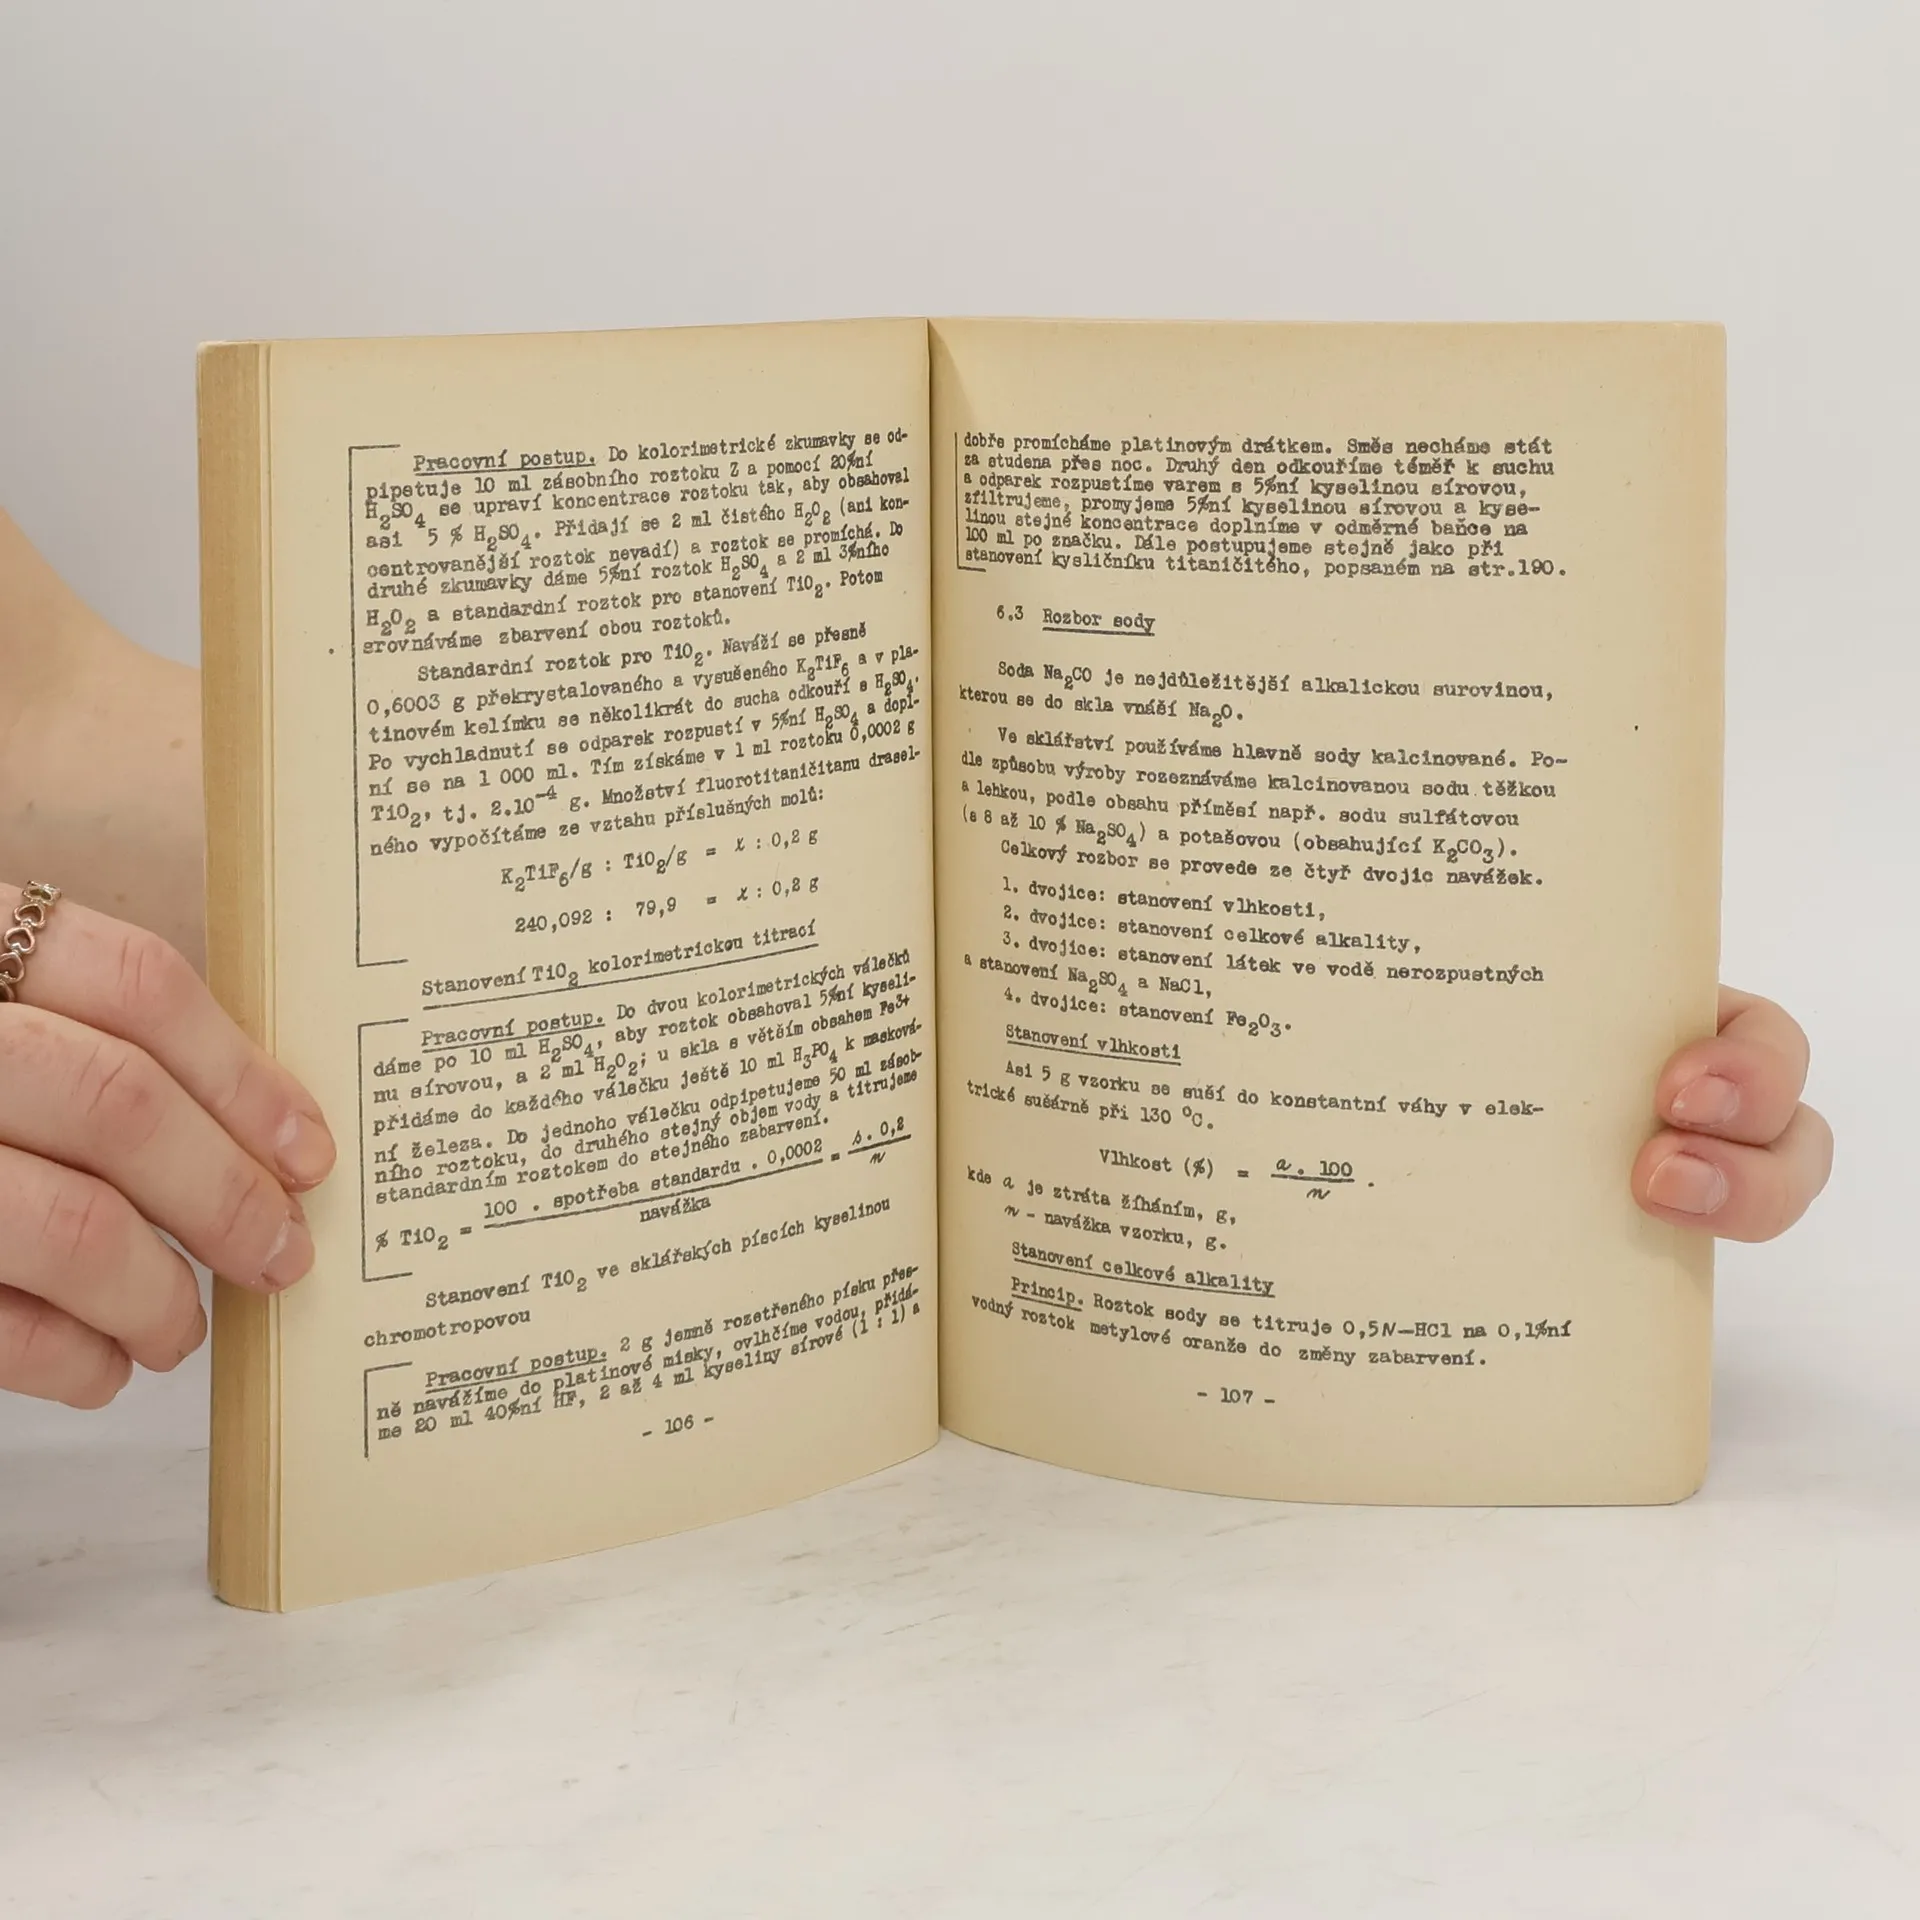 Pracovní postup. Do kolorimetrické zkumavky se od-
pipetuje 10 ml zásobního roztoku Z a pomocí 20%ní
H₂SO₄ se upraví koncentrace roztoku tak, aby obsahoval
asi 5 % H₂SO₄. Přidají se 2 ml čistého H₂O₂ (ani kon-
centrovanější roztok nevadí) a roztok se promíchá. Do
druhé zkumavky dáme 5%ní roztok H₂SO₄ a 2 ml 3%ního
H₂O₂ a standardní roztok pro stanovení TiO₂. Potom
srovnáváme zbarvení obou roztoků.
Standardní roztok pro TiO₂. Naváží se přesně
0,6003 g překrystalovaného a vysušeného K₂TiF₆ a v pla-
tinovém kelímku se několikrát do sucha odkouří s H₂SO₄.
Po vychladnutí se odparek rozpustí v 5%ní H₂SO₄ a dopl-
ní se na 1 000 ml. Tím získáme v 1 ml roztoku 0,0002 g
TiO₂, tj. 2.10⁻⁴ g. Množství fluorotitaničitanu drasel-
ného vypočítáme ze vztahu příslušných molů:
K₂TiF₆/g : TiO₂/g = x : 0,2 g
240,092 : 79,9 = x : 0,2 g
Stanovení TiO₂ kolorimetrickou titrací
Pracovní postup. Do dvou kolorimetrických válečků
dáme po 10 ml H₂SO₄, aby roztok obsahoval 5%ní kyseli-
nu sírovou, a 2 ml H₂O₂; u skla s větším obsahem Fe³⁺
přidáme do každého válečku ještě 10 ml H₃PO₄ k masková-
ní železa. Do jednoho válečku odpipetujeme 50 ml zásob-
ního roztoku, do druhého stejný objem vody a titrujeme
standardním roztokem do stejného zabarvení.
% TiO₂ = 100 . spotřeba standardu . 0,0002 / navážka = s . 0,2 / n
Stanovení TiO₂ ve sklářských píscích kyselinou
chromotropovou
Pracovní postup. 2 g jemně rozetřeného písku přes-
ně navážíme do platinové misky, ovlhčíme vodou, přidá-
me 20 ml 40%ní HF, 2 až 4 ml kyseliny sírové (1 : 1) a
- 106 -
dobře promícháme platinovým drátkem. Směs necháme stát
za studena přes noc. Druhý den odkouříme téměř k suchu
a odparek rozpustíme varem s 5%ní kyselinou sírovou,
zfiltrujeme, promyjeme 5%ní kyselinou sírovou a kyse-
linou stejné koncentrace doplníme v odměrné baňce na
100 ml po značku. Dále postupujeme stejně jako při
stanovení kysličníku titaničitého, popsaném na str.190.
6.3 Rozbor sody
Soda Na₂CO je nejdůležitější alkalickou surovinou,
kterou se do skla vnáší Na₂O.
Ve sklářství používáme hlavně sody kalcinované. Po-
dle způsobu výroby rozeznáváme kalcinovanou sodu těžkou
a lehkou, podle obsahu příměsí např. sodu sulfátovou
(s 8 až 10 % Na₂SO₄) a potašovou (obsahující K₂CO₃).
Celkový rozbor se provede ze čtyř dvojic navážek.
1. dvojice: stanovení vlhkosti,
2. dvojice: stanovení celkové alkality,
3. dvojice: stanovení látek ve vodě nerozpustných
a stanovení Na₂SO₄ a NaCl,
4. dvojice: stanovení Fe₂O₃.
Stanovení vlhkosti
Asi 5 g vzorku se suší do konstantní váhy v elek-
trické sušárně při 130 °C.
Vlhkost (%) = a . 100 / n .
kde a je ztráta žíháním, g,
n - navážka vzorku, g.
Stanovení celkové alkality
Princip. Roztok sody se titruje 0,5N-HCl na 0,1%ní
vodný roztok metylové oranže do změny zabarvení.
- 107 -